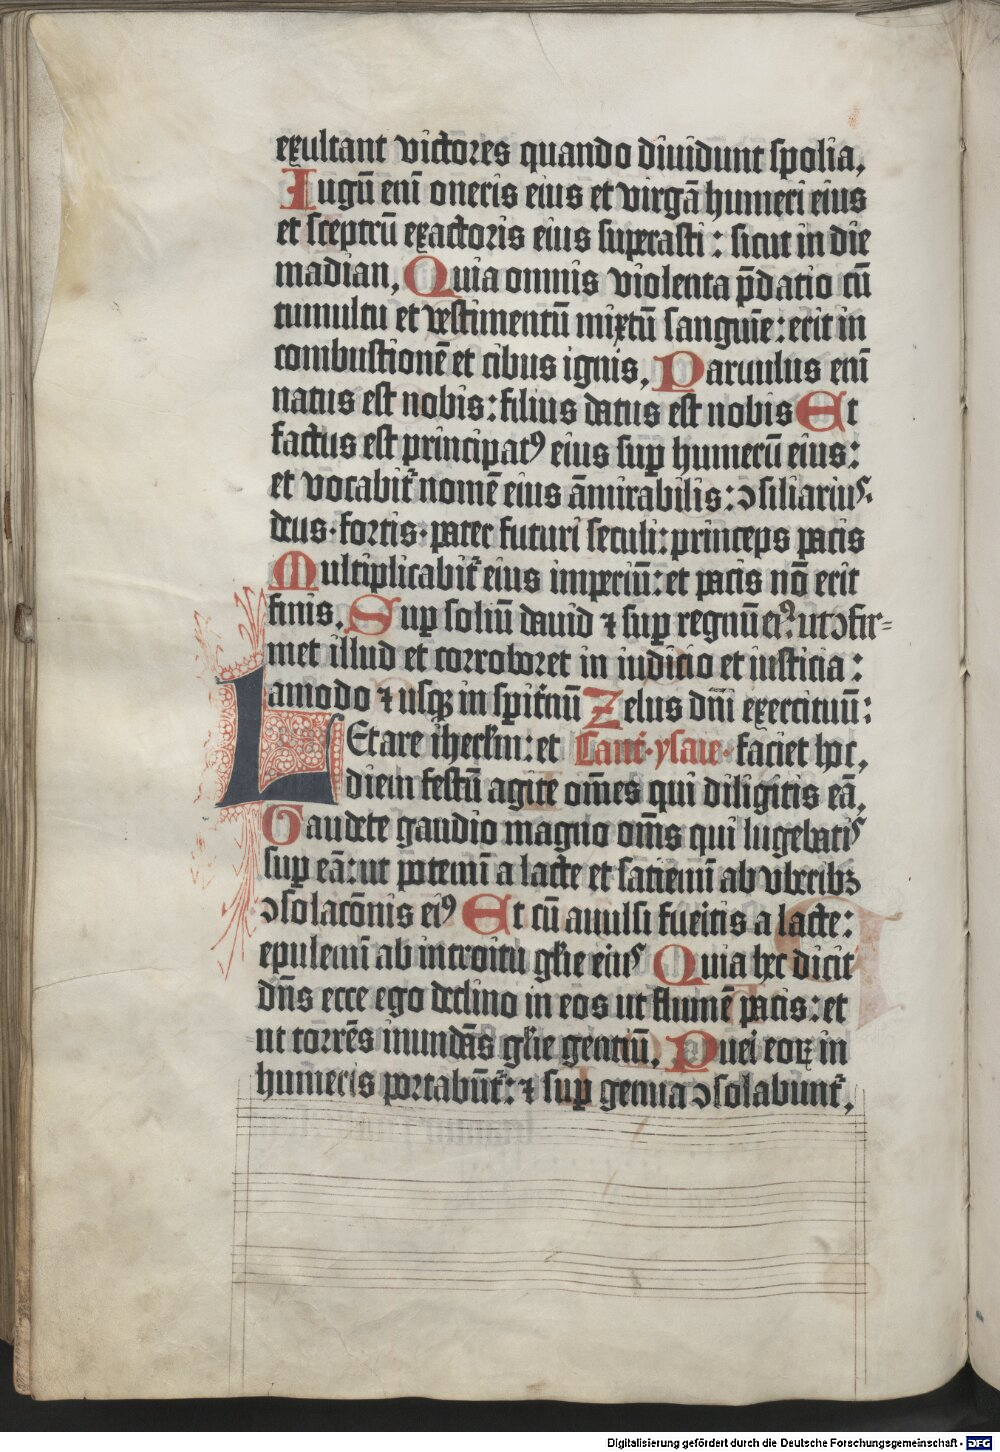 exultant victores quando diuidunt spolia,
Iugū enī oneris eius et virgā humeri eius
et sceptrū exactoris eius superasti: sicut in die
madian, Quia omnis violenta p̄datio cū
tumultu et vestimentū mixtū sanguīe: erit in
combustionē et cibus ignis, Paruulus enī
natus est nobis: filius datus est nobis Et
factus est principatꝰ eius suꝑ humerū eius:
et vocabit̄ nomē eius āmirabilis: ↄsiliarius·
deus· fortis· pater futuri seculi: princeps pacis
Multiplicabit̄ eius imperiū: et pacis nō erit
finis, Suꝑ soliū dauid ⁊ suꝑ regnū eiꝰ: ut ↄfir=
met illud et corroboret in iudicio et iusticia:
amodo ⁊ usqꝫ in sp̄it̄nū Zelus dn̄i exercituū:
LEtare iherl̄m: et Cant̄· ysaie· faciet hoc,
diem festū agite om̄es qui diligitis eā,
Gaudete gaudio magno om̄s qui lugebatis
suꝑ eā: ut potemī a lacte et satiemī ab vberibꝫ
ↄsolacōnis eiꝰ Et cū auulsi fueitis a lacte:
epulemī ab introitu gl̄ie eius Quia hec dicit
dn̄s ecce ego declino in eos ut flumē pacis: et
ut torrēs inundās gl̄ie gentiū, Puei eoꝝ in
humeris portabūt̄: ⁊ suꝑ genua ↄsolabunt̄,
Digitalisierung gefördert durch die Deutsche Forschungsgemeinschaft - DFG